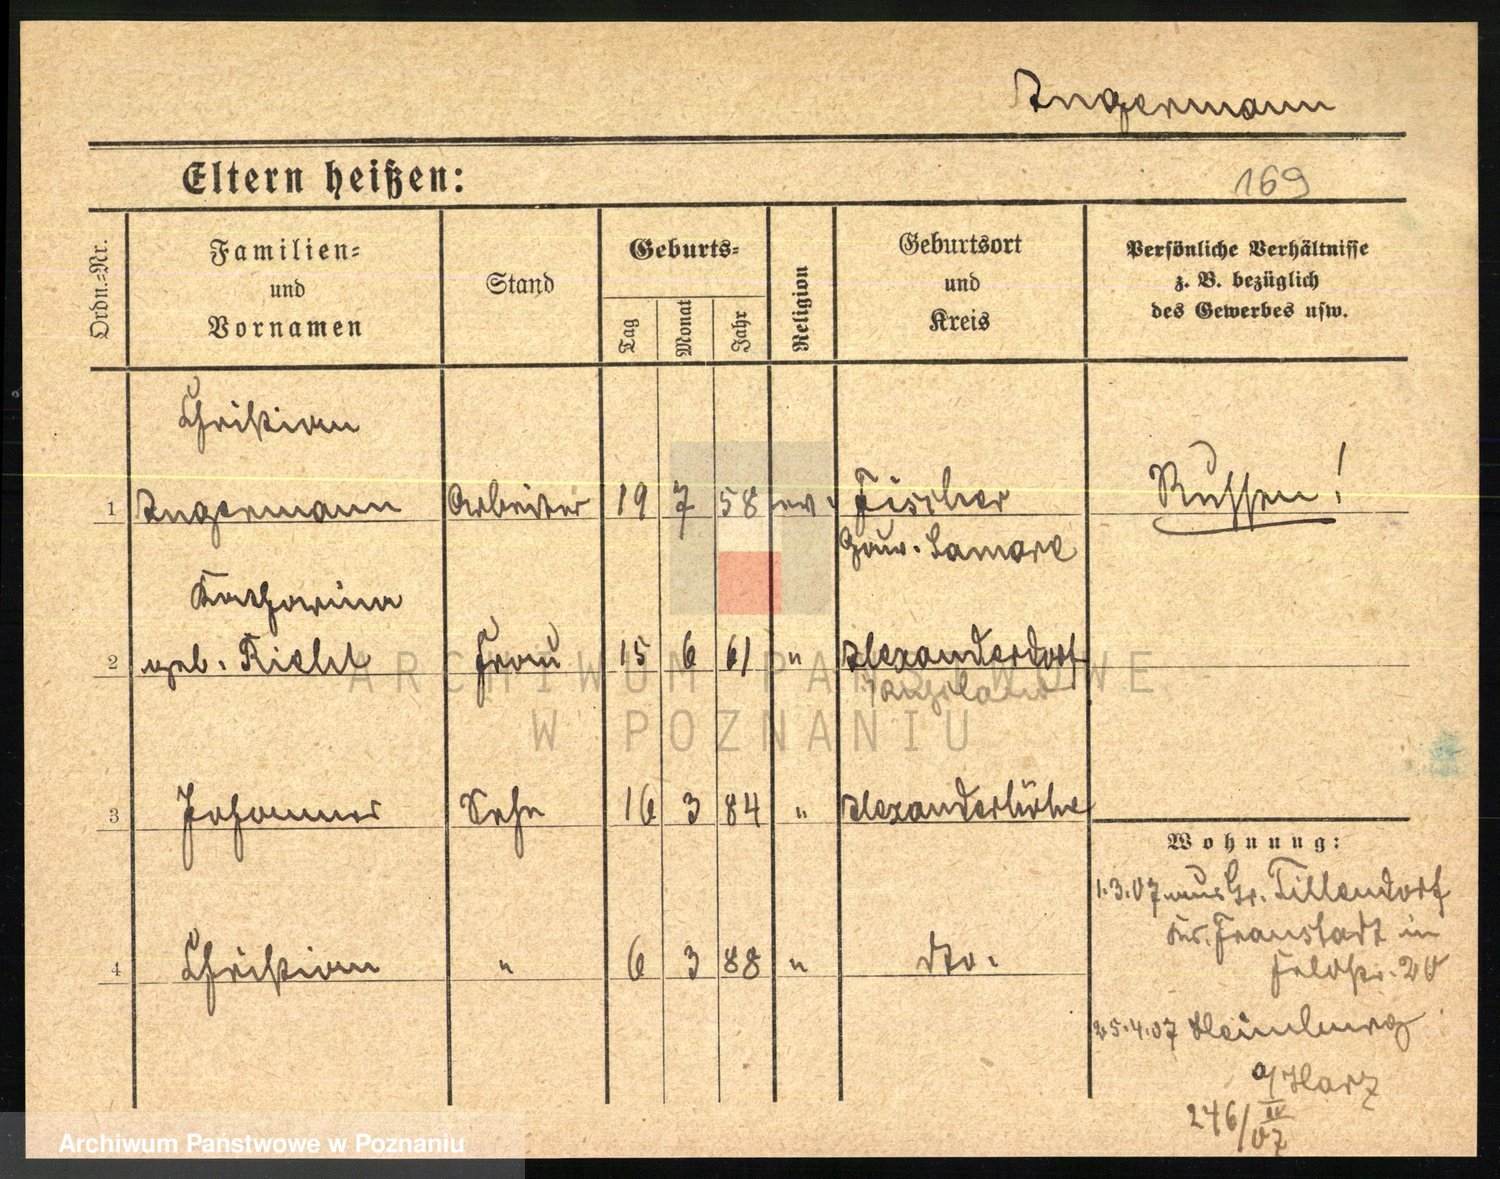 Angermann
Eltern heißen:
169
Ordn.-Nr.
Familien-
und
Vornamen
Stand
Geburts-
Tag
Monat
Jahr
Religion
Geburtsort
und
Kreis
Persönliche Verhältnisse
z. B. bezüglich
des Gewerbes usw.
Christian
1 Angermann Arbeiter 19 7 58 ev. Fischer Russen!
Gouv. Samara
Katharina
2 geb. Riehl Frau 15 6 61 " Alexanderdorf
3 Johannes Sohn 16 3 84 " Alexanderhöhe
Wohnung:
1.3.07 aus Gr. Tillendorf
Kr. Fraustadt in
Feldstr. 20
4 Christian " 6 3 88 " do.
25.4.07 Heimburg
a/Harz
246/IV
07
ARCHIWUM PAŃSTWOWE
W POZNANIU
Archiwum Państwowe w Poznaniu